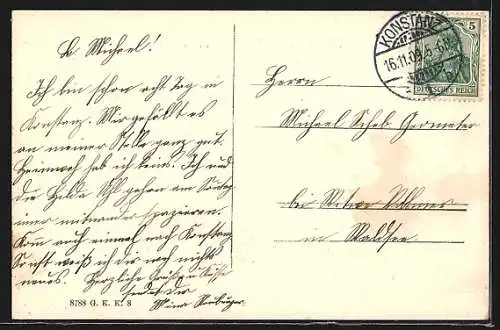 L. Michael!
Ich bin schon acht Tag in
Konstanz. Mir gefällt es
an meiner Stelle ganz gut.
Heimweh hab ich keins. Ich und
die Hilda gehen am Sonntag
immer miteinander spazieren.
Komm auch einmal nach Konstanz
Sonst weiß ich dir noch nichts
neues. Herzliche Grüße
sendet dir
Mina
8788 G. K. K. S
KONSTANZ
16.11.09. 5-6N
5
DEUTSCHES REICH
Herrn
Michael Scheb Germeter
bei
in Waldsee.